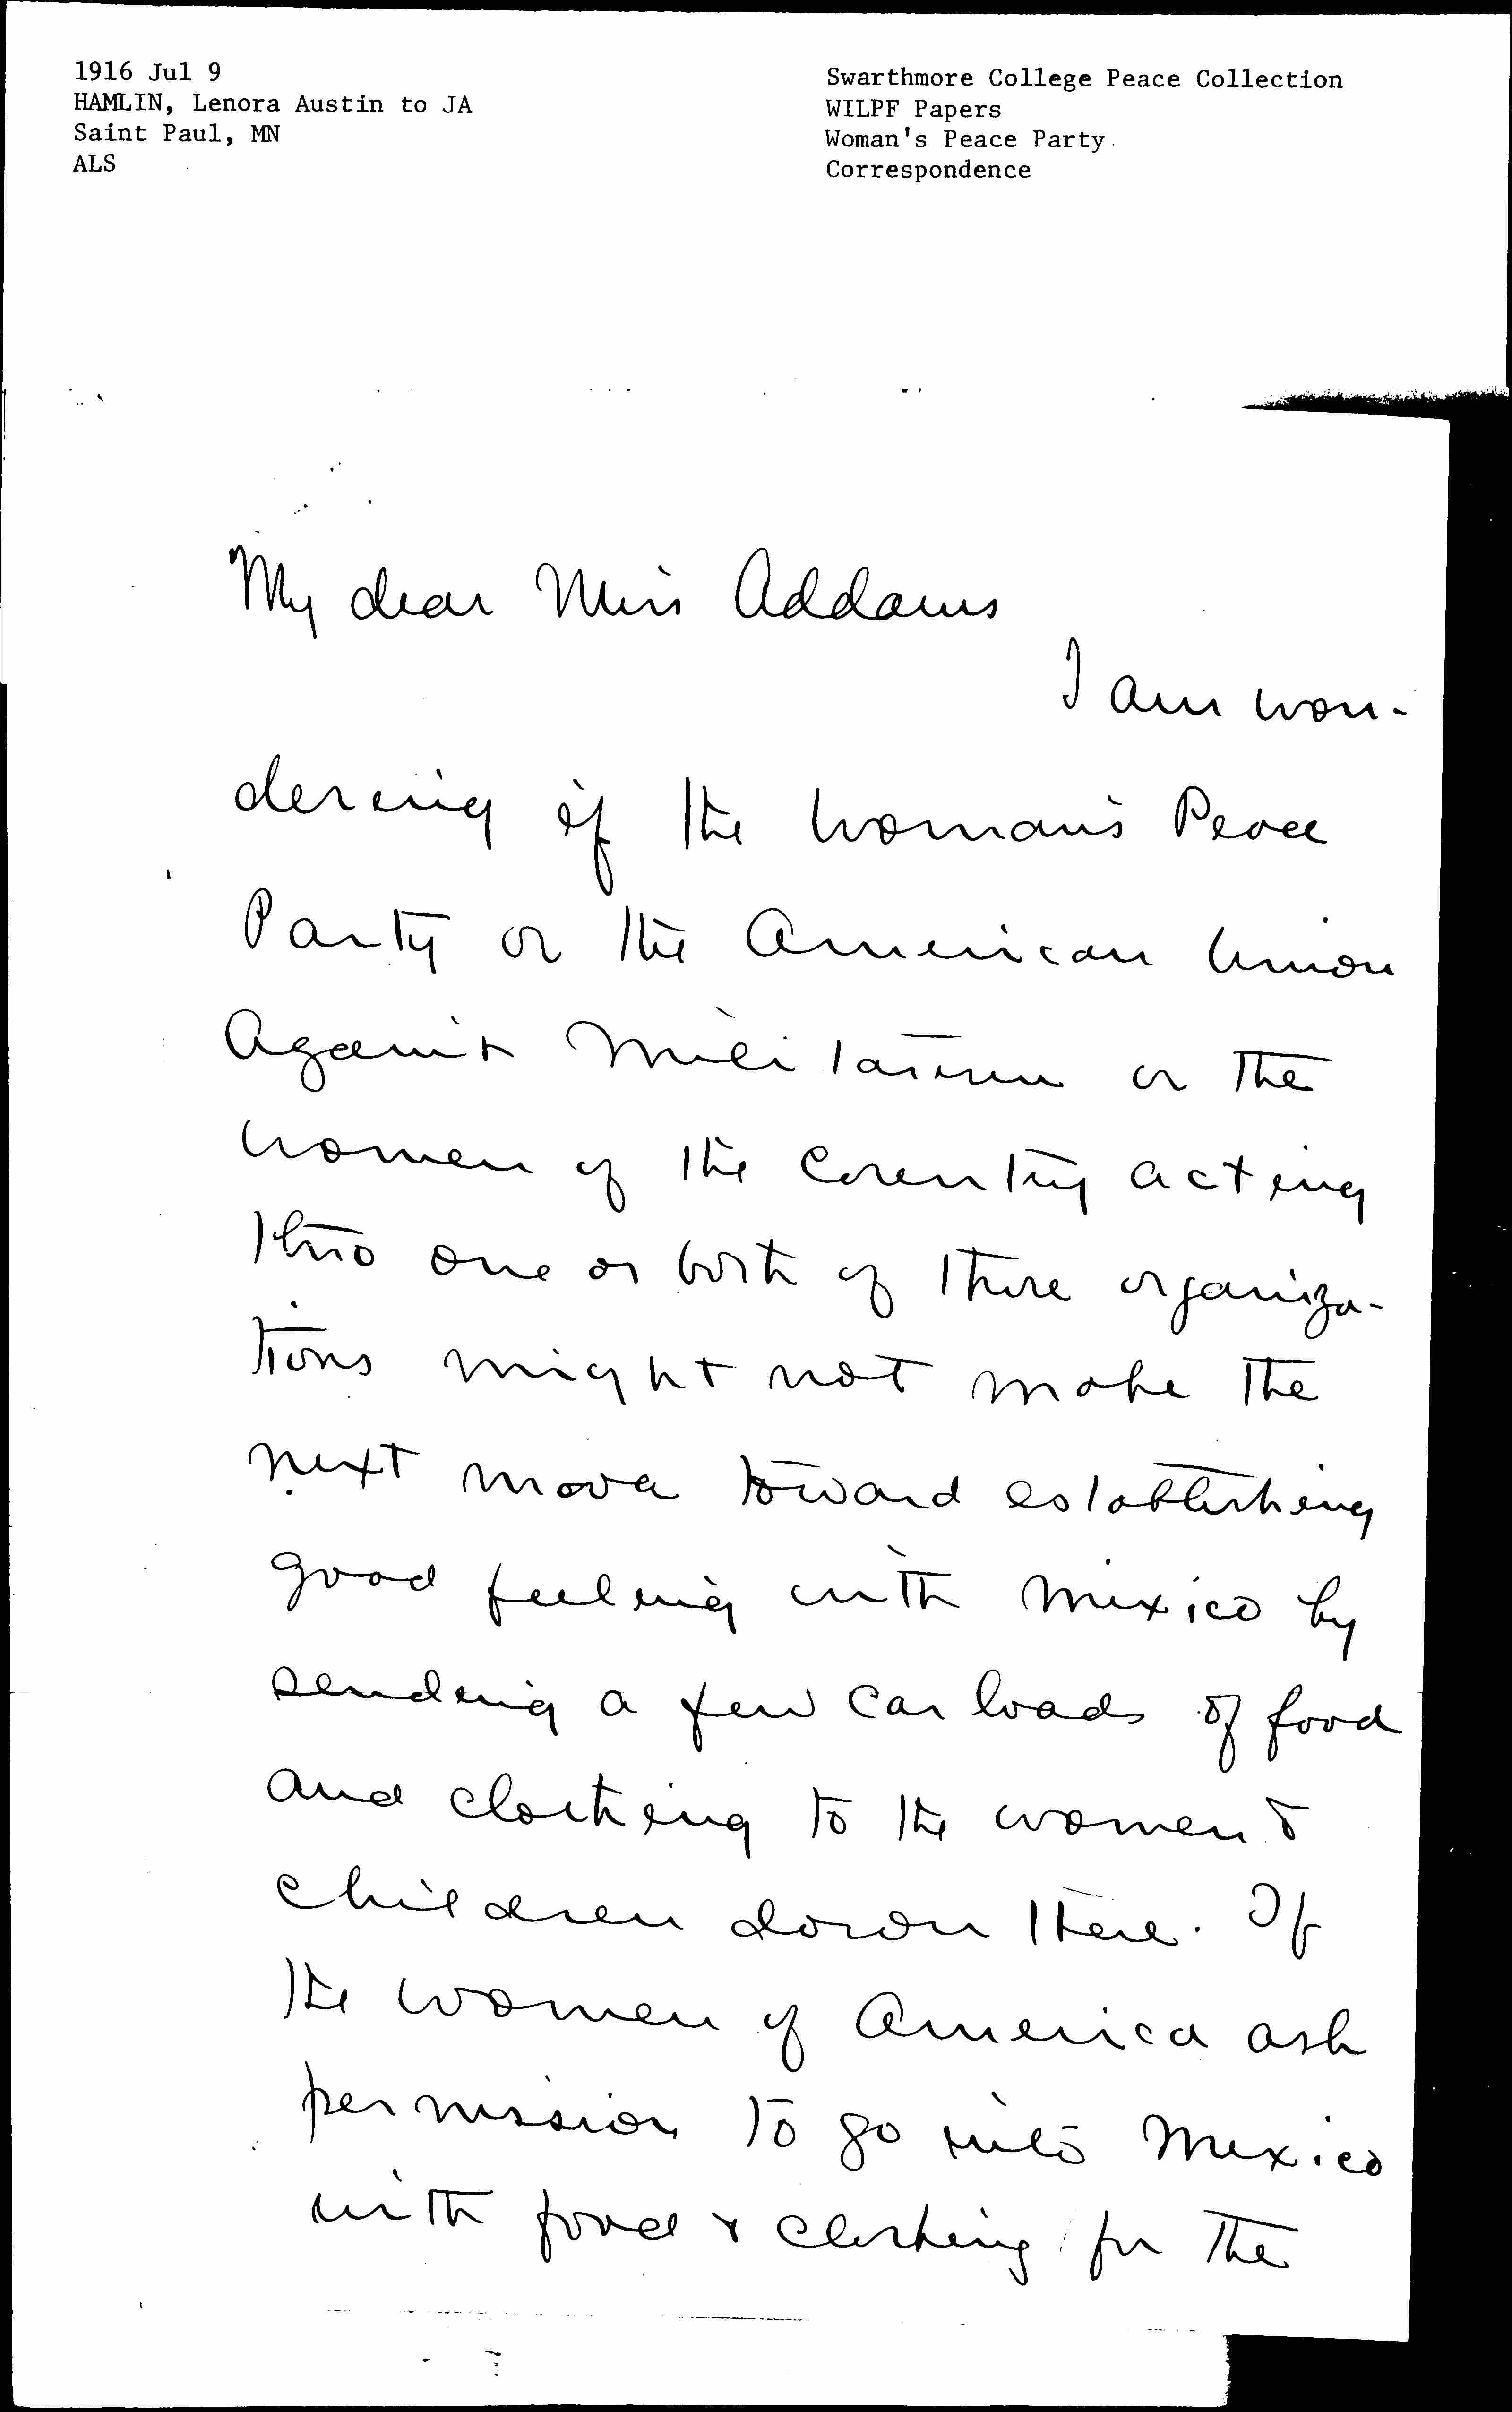 1916 Jul 9
HAMLIN, Lenora Austin to JA
Saint Paul, MN
ALS
Swarthmore College Peace Collection
WILPF Papers
Woman's Peace Party.
Correspondence
My dear Miss Addams
I am won-
dering if the Woman's Peace
Party or the American Union
Against Militarism or the
women of the Country acting
thro one or both of these organiza-
tions might not make the
next move toward establishing
good feeling with Mexico by
sending a few car loads of food
and clothing to the women &
children down there. If
the women of America ask
permission to go into Mexico
with food & clothing for the